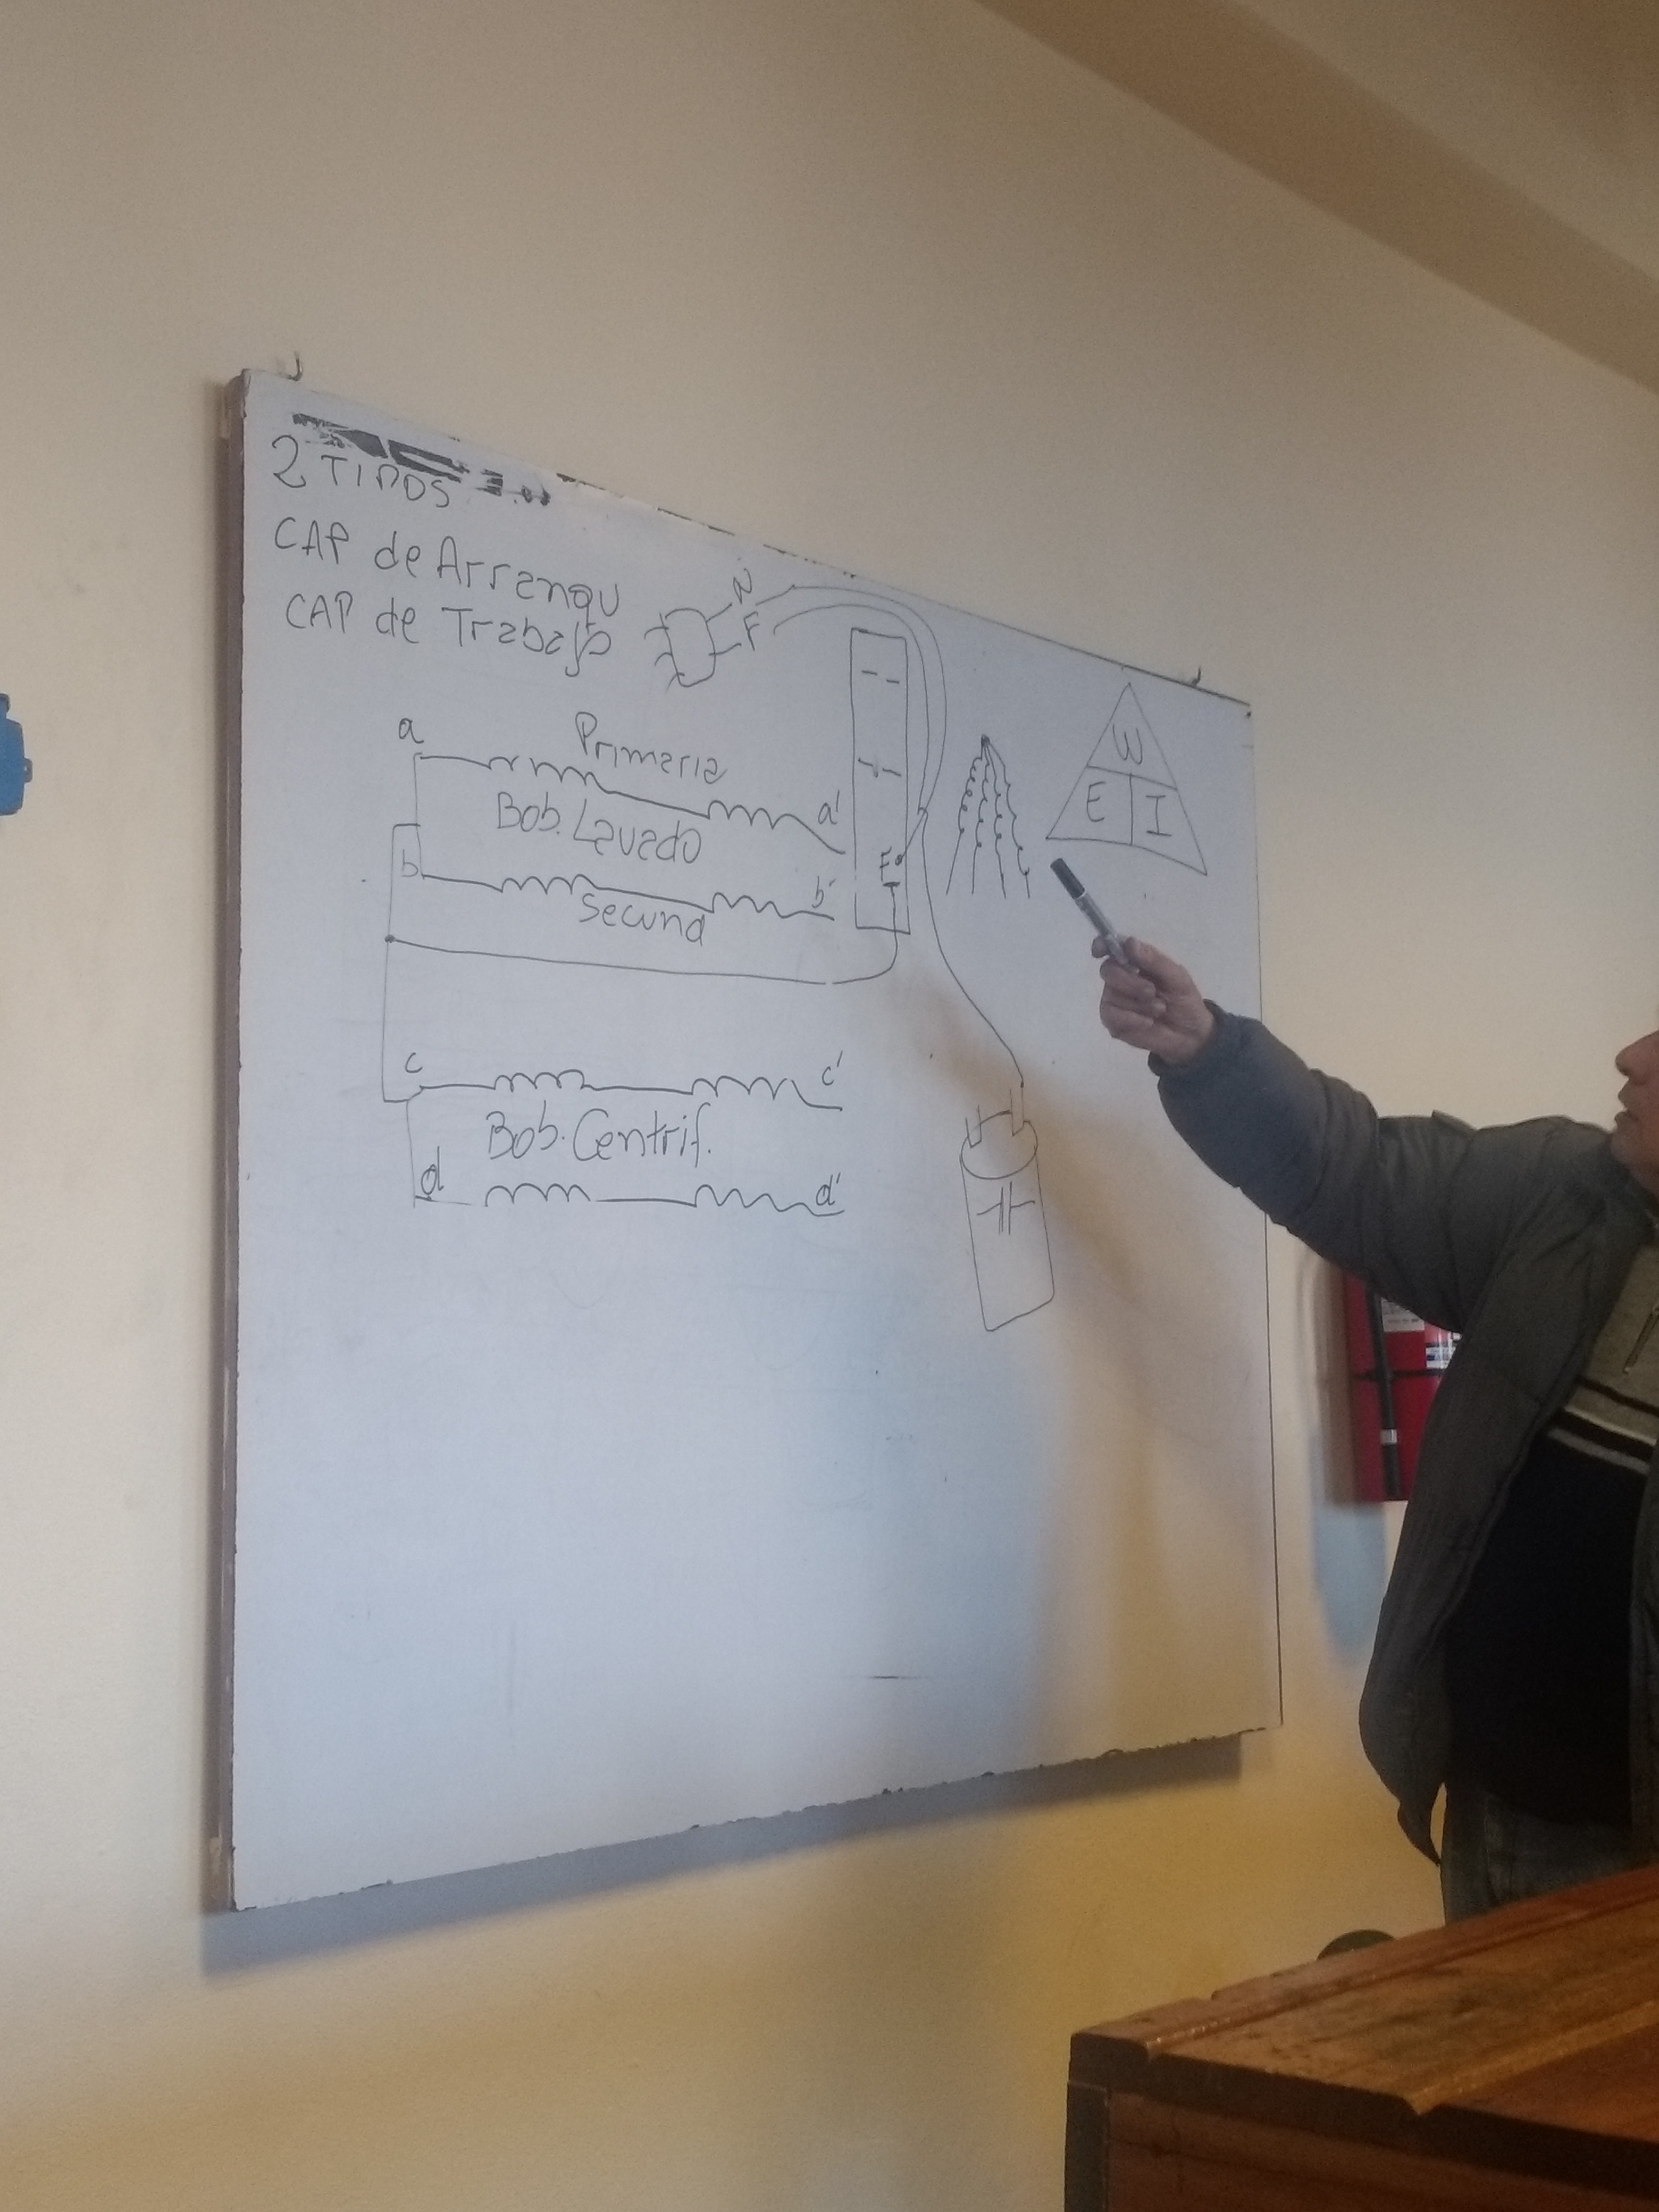 2 TIPOS
CAP de Arranqu
CAP de Trabajo
N
F
a
Primaria
a'
Bob. Lavado
b
b'
Secund
F
W
E
I
c
c'
Bob. Centrif.
d
d'